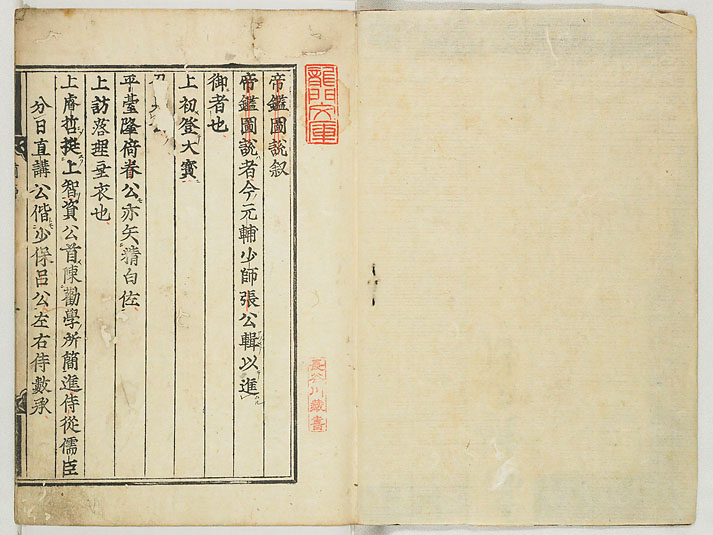 帝鑑圖說叙
帝鑑圖說者今元輔少師張公輯以進
御者也
上初登大寶
平臺隆倚眷公亦矢精白佐
上訪落理垂衣也
上睿哲挺上智資公首陳勸學所簡進侍從儒臣
分日直講公偕少保呂公左右侍數承
龍門文庫
長谷川藏書